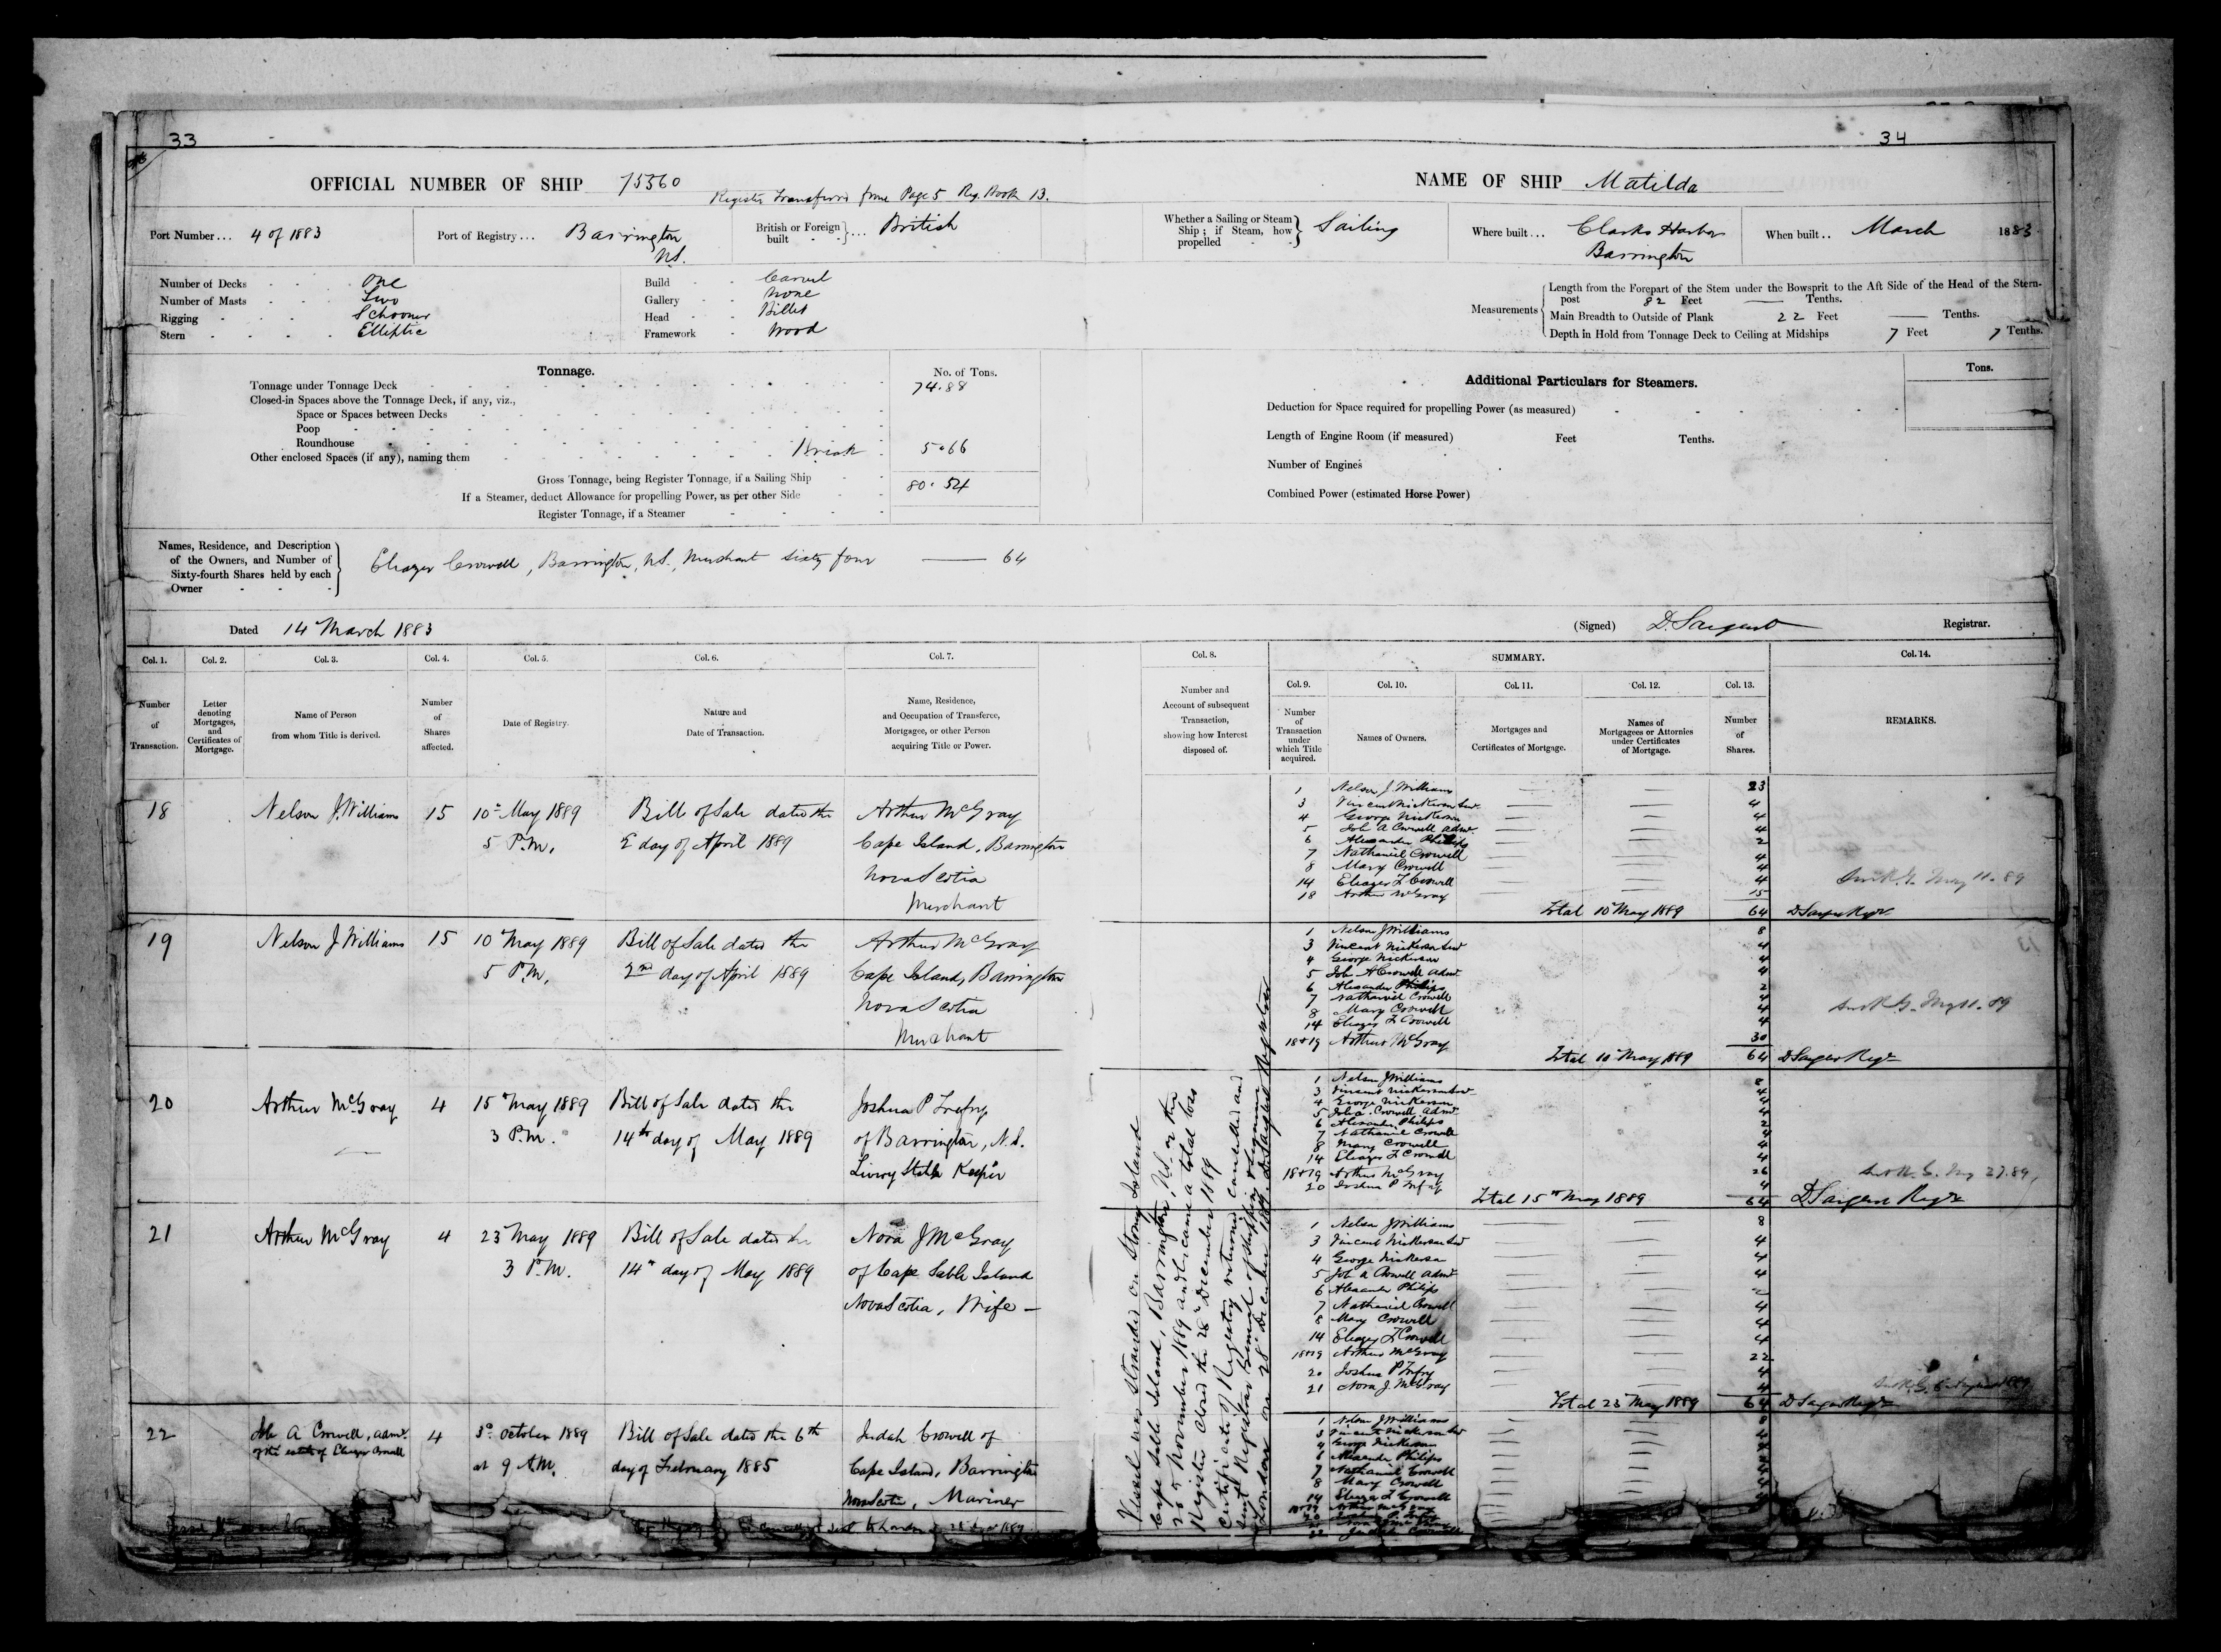 33
34
OFFICIAL NUMBER OF SHIP 75560
Register transferred from Page 5 Reg. Book 13.
NAME OF SHIP Matilda
Port Number... 4 of 1883
Port of Registry... Barrington N.S.
British or Foreign built } ... British
Whether a Sailing or Steam Ship; if Steam, how propelled } Sailing
Where built... Clarks Harbor Barrington
When built.. March 1883
Number of Decks One
Number of Masts Two
Rigging Schooner
Stern Elliptic
Build Carvel
Gallery None
Head Billet
Framework Wood
Measurements
Length from the Forepart of the Stem under the Bowsprit to the Aft Side of the Head of the Stern-
post 82 Feet — Tenths.
Main Breadth to Outside of Plank 22 Feet — Tenths.
Depth in Hold from Tonnage Deck to Ceiling at Midships 7 Feet 7 Tenths.
Tonnage.
No. of Tons.
Tonnage under Tonnage Deck 74.88
Closed-in Spaces above the Tonnage Deck, if any, viz.,
Space or Spaces between Decks
Poop
Roundhouse
Other enclosed Spaces (if any), naming them Break 5.66
Gross Tonnage, being Register Tonnage, if a Sailing Ship 80.54
If a Steamer, deduct Allowance for propelling Power, as per other Side
Register Tonnage, if a Steamer
Additional Particulars for Steamers.
Tons.
Deduction for Space required for propelling Power (as measured)
Length of Engine Room (if measured) Feet Tenths.
Number of Engines
Combined Power (estimated Horse Power)
Names, Residence, and Description
of the Owners, and Number of
Sixty-fourth Shares held by each
Owner
Eleazer Crowell, Barrington, N.S., Merchant sixty four — 64
Dated 14 March 1883
(Signed) D. Sargent Registrar.
Col. 1. Number of Transaction.
Col. 2. Letter denoting Mortgages, and Certificates of Mortgage.
Col. 3. Name of Person from whom Title is derived.
Col. 4. Number of Shares affected.
Col. 5. Date of Registry.
Col. 6. Nature and Date of Transaction.
Col. 7. Name, Residence, and Occupation of Transferee, Mortgagee, or other Person acquiring Title or Power.
Col. 8. Number and Account of subsequent Transaction, showing how Interest disposed of.
SUMMARY.
Col. 9. Number of Transaction under which Title acquired.
Col. 10. Names of Owners.
Col. 11. Mortgages and Certificates of Mortgage.
Col. 12. Names of Mortgagees or Attornies under Certificates of Mortgage.
Col. 13. Number of Shares.
Col. 14. REMARKS.
18 Nelson J. Williams 15 10 May 1889 Bill of Sale dated the Arthur McGray
5 P.M. 2 day of April 1889 Cape Island, Barrington
Nova Scotia
Merchant
1 Nelson J Williams 23
3 Vincent Nickerson Senr. 4
4 George Nickerson 4
5 Job A Crowell Admr. 4
6 Alexander Philips 2
7 Nathaniel Crowell 4
8 Mary Crowell 4
14 Eleazer L Crowell 4
18 Arthur McGray 15
Total 10 May 1889 64 D Sargent Regr
May 11. 89
19 Nelson J Williams 15 10 May 1889 Bill of Sale dated the Arthur McGray
5 P.M. 2nd day of April 1889 Cape Island, Barrington
Nova Scotia
Merchant
1 Nelson J Williams 8
3 Vincent Nickerson Senr 4
4 George Nickerson 4
5 Job A Crowell Admr. 4
6 Alexander Philips 2
7 Nathaniel Crowell 4
8 Mary Crowell 4
14 Eleazer L Crowell 4
18+19 Arthur McGray 30
Total 10 May 1889 64 D Sargent Regr
20 Arthur McGray 4 15 May 1889 Bill of Sale dated the Joshua P Trefry
3 P.M. 14th day of May 1889 of Barrington, N.S.
Livery Stable Keeper
1 Nelson J Williams 8
3 Vincent Nickerson Senr 4
4 George Nickerson 4
5 Job A. Crowell Admr. 4
6 Alexander Philips 2
7 Nathaniel Crowell 4
8 Mary Crowell 4
14 Eleazer L Crowell 4
18+19 Arthur McGray 26
20 Joshua P Trefry 4
Total 15th May 1889 64 D Sargent Regr
21 Arthur McGray 4 23 May 1889 Bill of Sale dated the Nora J McGray
3 P.M. 14th day of May 1889 of Cape Sable Island
Nova Scotia, Wife —
1 Nelson J Williams 8
3 Vincent Nickerson Senr 4
4 George Nickerson 4
5 Job A Crowell Admr 4
6 Alexander Philips 2
7 Nathaniel Crowell 4
8 Mary Crowell 4
14 Eleazer L Crowell 4
18+19 Arthur McGray 22
20 Joshua P Trefry 4
21 Nora J. McGray 4
Total 23 May 1889 64 D Sargent Regr
22 Job A Crowell, admr. 4 3d October 1889 Bill of Sale dated the 6th Judah Crowell of
of the estate of Eleazer Crowell at 9 A.M. day of February 1885 Cape Island, Barrington
Nova Scotia, Mariner
1 Nelson J Williams 8
3 Vincent Nickerson Senr
4 George Nickerson
6 Alexander Philips
7 Nathaniel Crowell
8 Mary Crowell
14 Eleazer L Crowell
22 Judah Crowell
Vessel was stranded on Stoney Island
Cape Sable Island, Barrington, N.S. on the
November 1889 and became a total loss
Register closed the 28 December 1889
Certificate of Registry returned cancelled and
sent Registrar General of Shipping & Seamen
London on 28 December 1889 D. Sargent Registrar